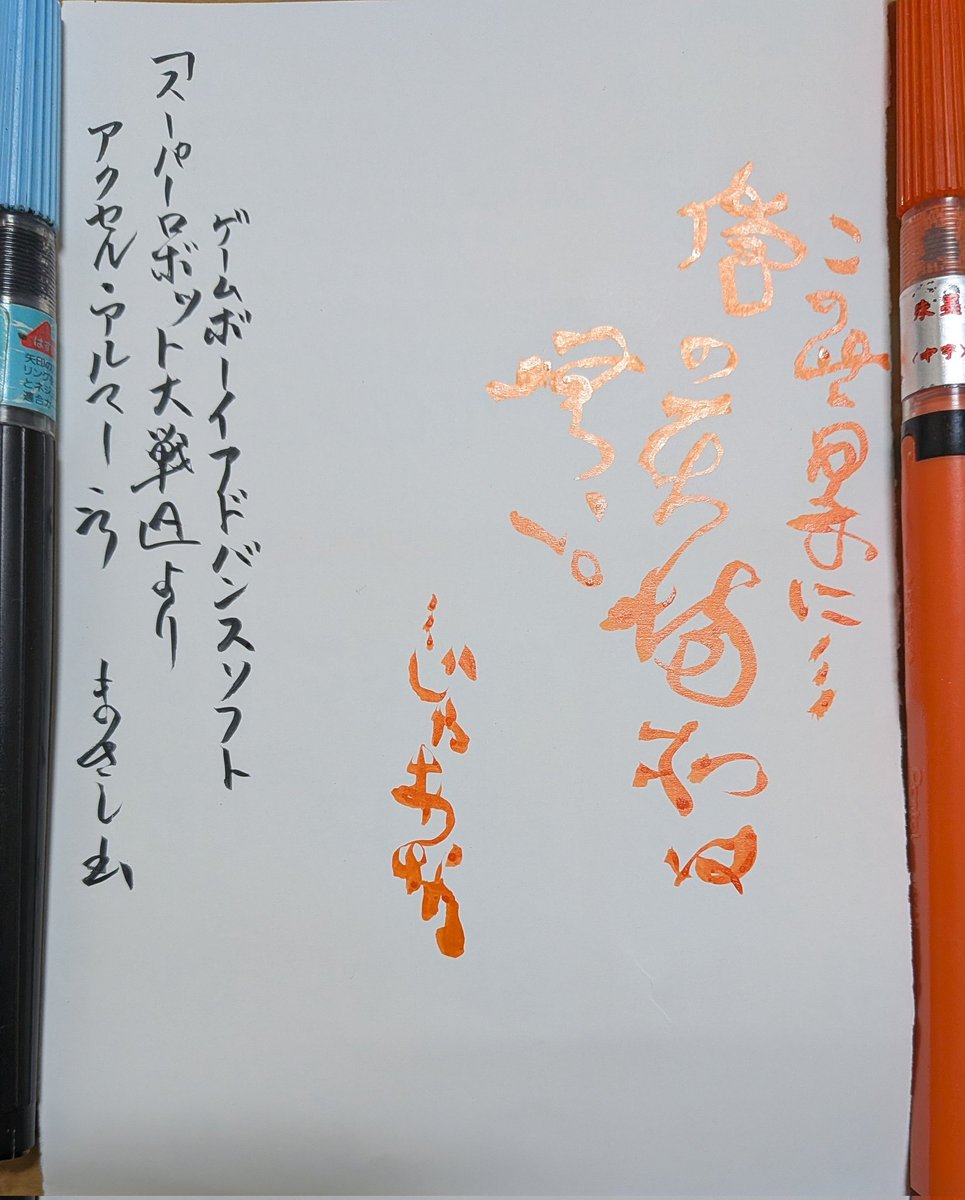 この世界に…
の居場所は
…じゃあな
ゲームボーイアドバンスソフト
「スーパーロボット大戦A」より
アクセル・アルマー
朱墨
〈中字〉
矢印の
リング
とネジ
適合カ